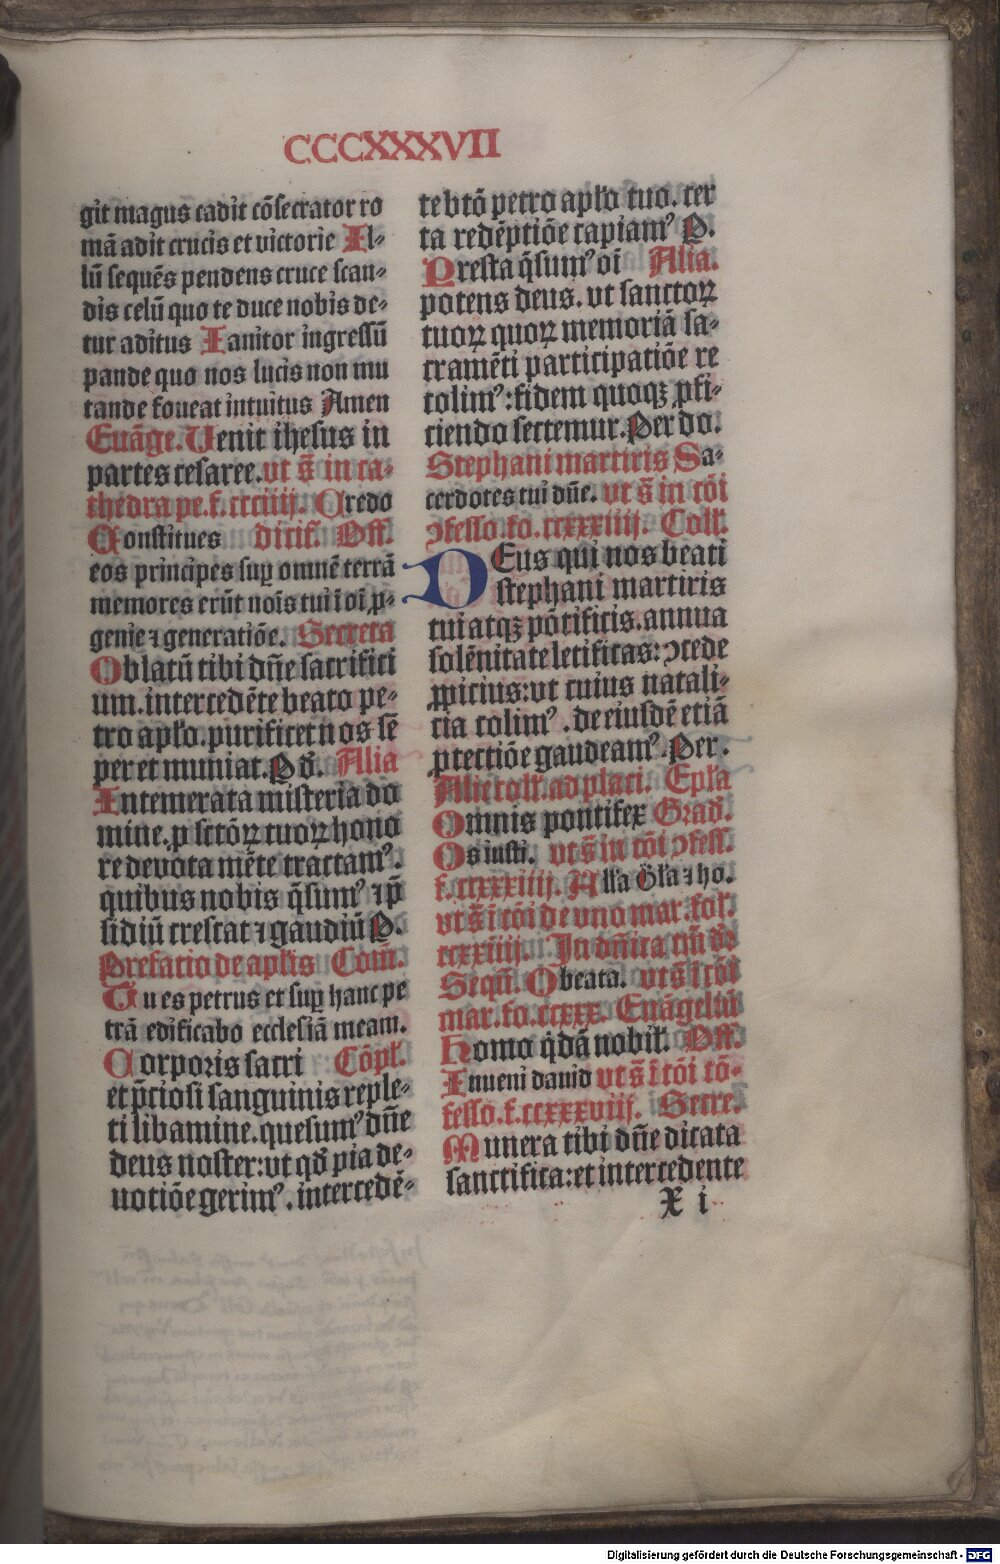 CCCXXXVII
git magus cadit cōsecrator ro
mā adit crucis et victorie Il⸗
lū sequēs pendens cruce scan⸗
dis celū quo te duce nobis de⸗
tur aditus Ianitor ingressū
pande quo nos lucis non mu
tande foueat intuitus Amen
Euāge. Uenit ihesus in
partes cesaree. vt s̄ in ca⸗
thedra pe. f. ccciiij. Credo
Constitues dicif. Off.
eos principes suꝑ omnē terrā
memores erūt noīs tui ī oī ꝓ⸗
genie ⁊ generatiōe. Secreta
Oblatū tibi dn̄e sacrifici
um. intercedēte beato pe⸗
tro aplo. purificet nos sē
per et muniat. P d̄. Alia
Intemerata misteria do
mine. ꝓ sctōꝝ tuoꝝ hono
re deuota mēte tractamꝰ.
quibus nobis q̄sumꝰ ⁊ p̄
sidiū crescat ⁊ gaudiū P.
Prefatio de aplis Com̄.
Tu es petrus et suꝑ hanc pe
trā edificabo ecclesiā meam.
Corporis sacri Cōpl.
et p̄ciosi sanguinis reple⸗
ti libamine. quesumꝰ dn̄e
deus noster: vt qd̄ pia de⸗
uotiōe gerimꝰ. intercedē⸗
te btō petro aplo tuo. cer
ta redēptiōe capiamꝰ P.
Presta q̄sumꝰ oī Alia.
potens deus. vt sanctoꝝ
tuoꝝ quoꝝ memoriā sa⸗
cramēti participatiōe re
colimꝰ: fidem quoqꝫ ꝓfi⸗
ciendo sectemur. Per do.
Stephani martiris Sa⸗
cerdotes tui dn̄e. vt s̄ in cōi
ꝯfesso. fo. ccxxxiiij. Coll.
DEus qui nos beati
stephani martiris
tui atqꝫ pōtificis. annua
solēnitate letificas: ꝯcede
ꝓpicius: vt cuius natali⸗
cia colimꝰ. de eiusdē etiā
ꝓtectiōe gaudeamꝰ. Per.
Alie coll. ad placi. Epla
Omnis pontifex Grad̄.
Os iusti. vt s̄ in cōi ꝯfess.
f. ccxxxiiij. Alla Gl̄a ⁊ ho.
vt s̄ ī cōi de vno mar. fol.
ccxxiiij. In dn̄ica tm̄ d̄r
Seqn̄. O beata. vt s̄ ī cōi
mar. fo. ccxxx. Euāgeliū
Homo q̄dā nobil. Off.
Inueni dauid vt s̄ ī cōi cō⸗
fesso. f. ccxxxviij. Secre.
Munera tibi dn̄e dicata
sanctifica: et intercedente
X i
Digitalisierung gefördert durch die Deutsche Forschungsgemeinschaft - DFG